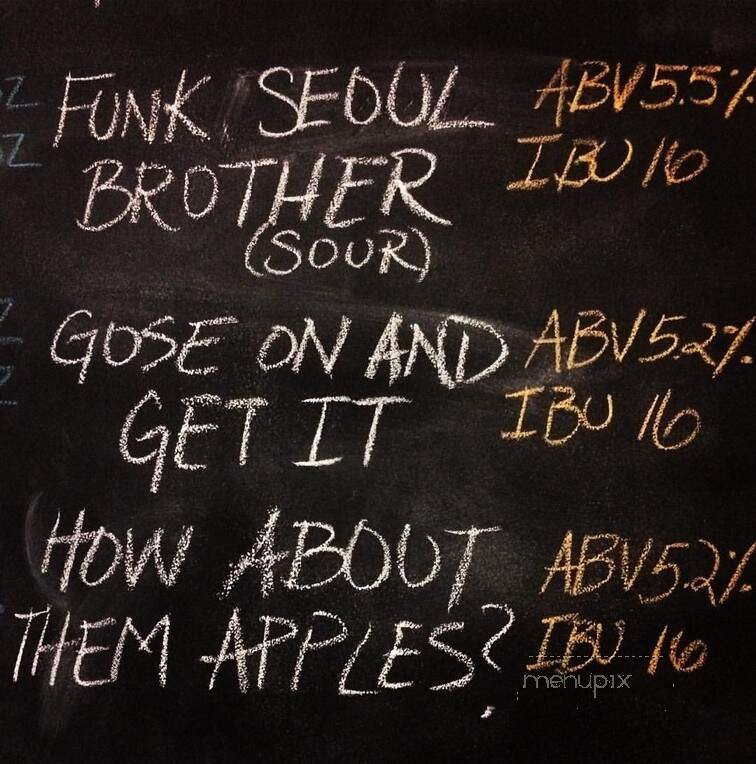 FUNK SEOUL ABV 5.5%
BROTHER IBU 16
(SOUR)
GOSE ON AND ABV 5.2%
GET IT IBU 16
HOW ABOUT ABV 5.2%
THEM APPLES? IBU 16
menupix